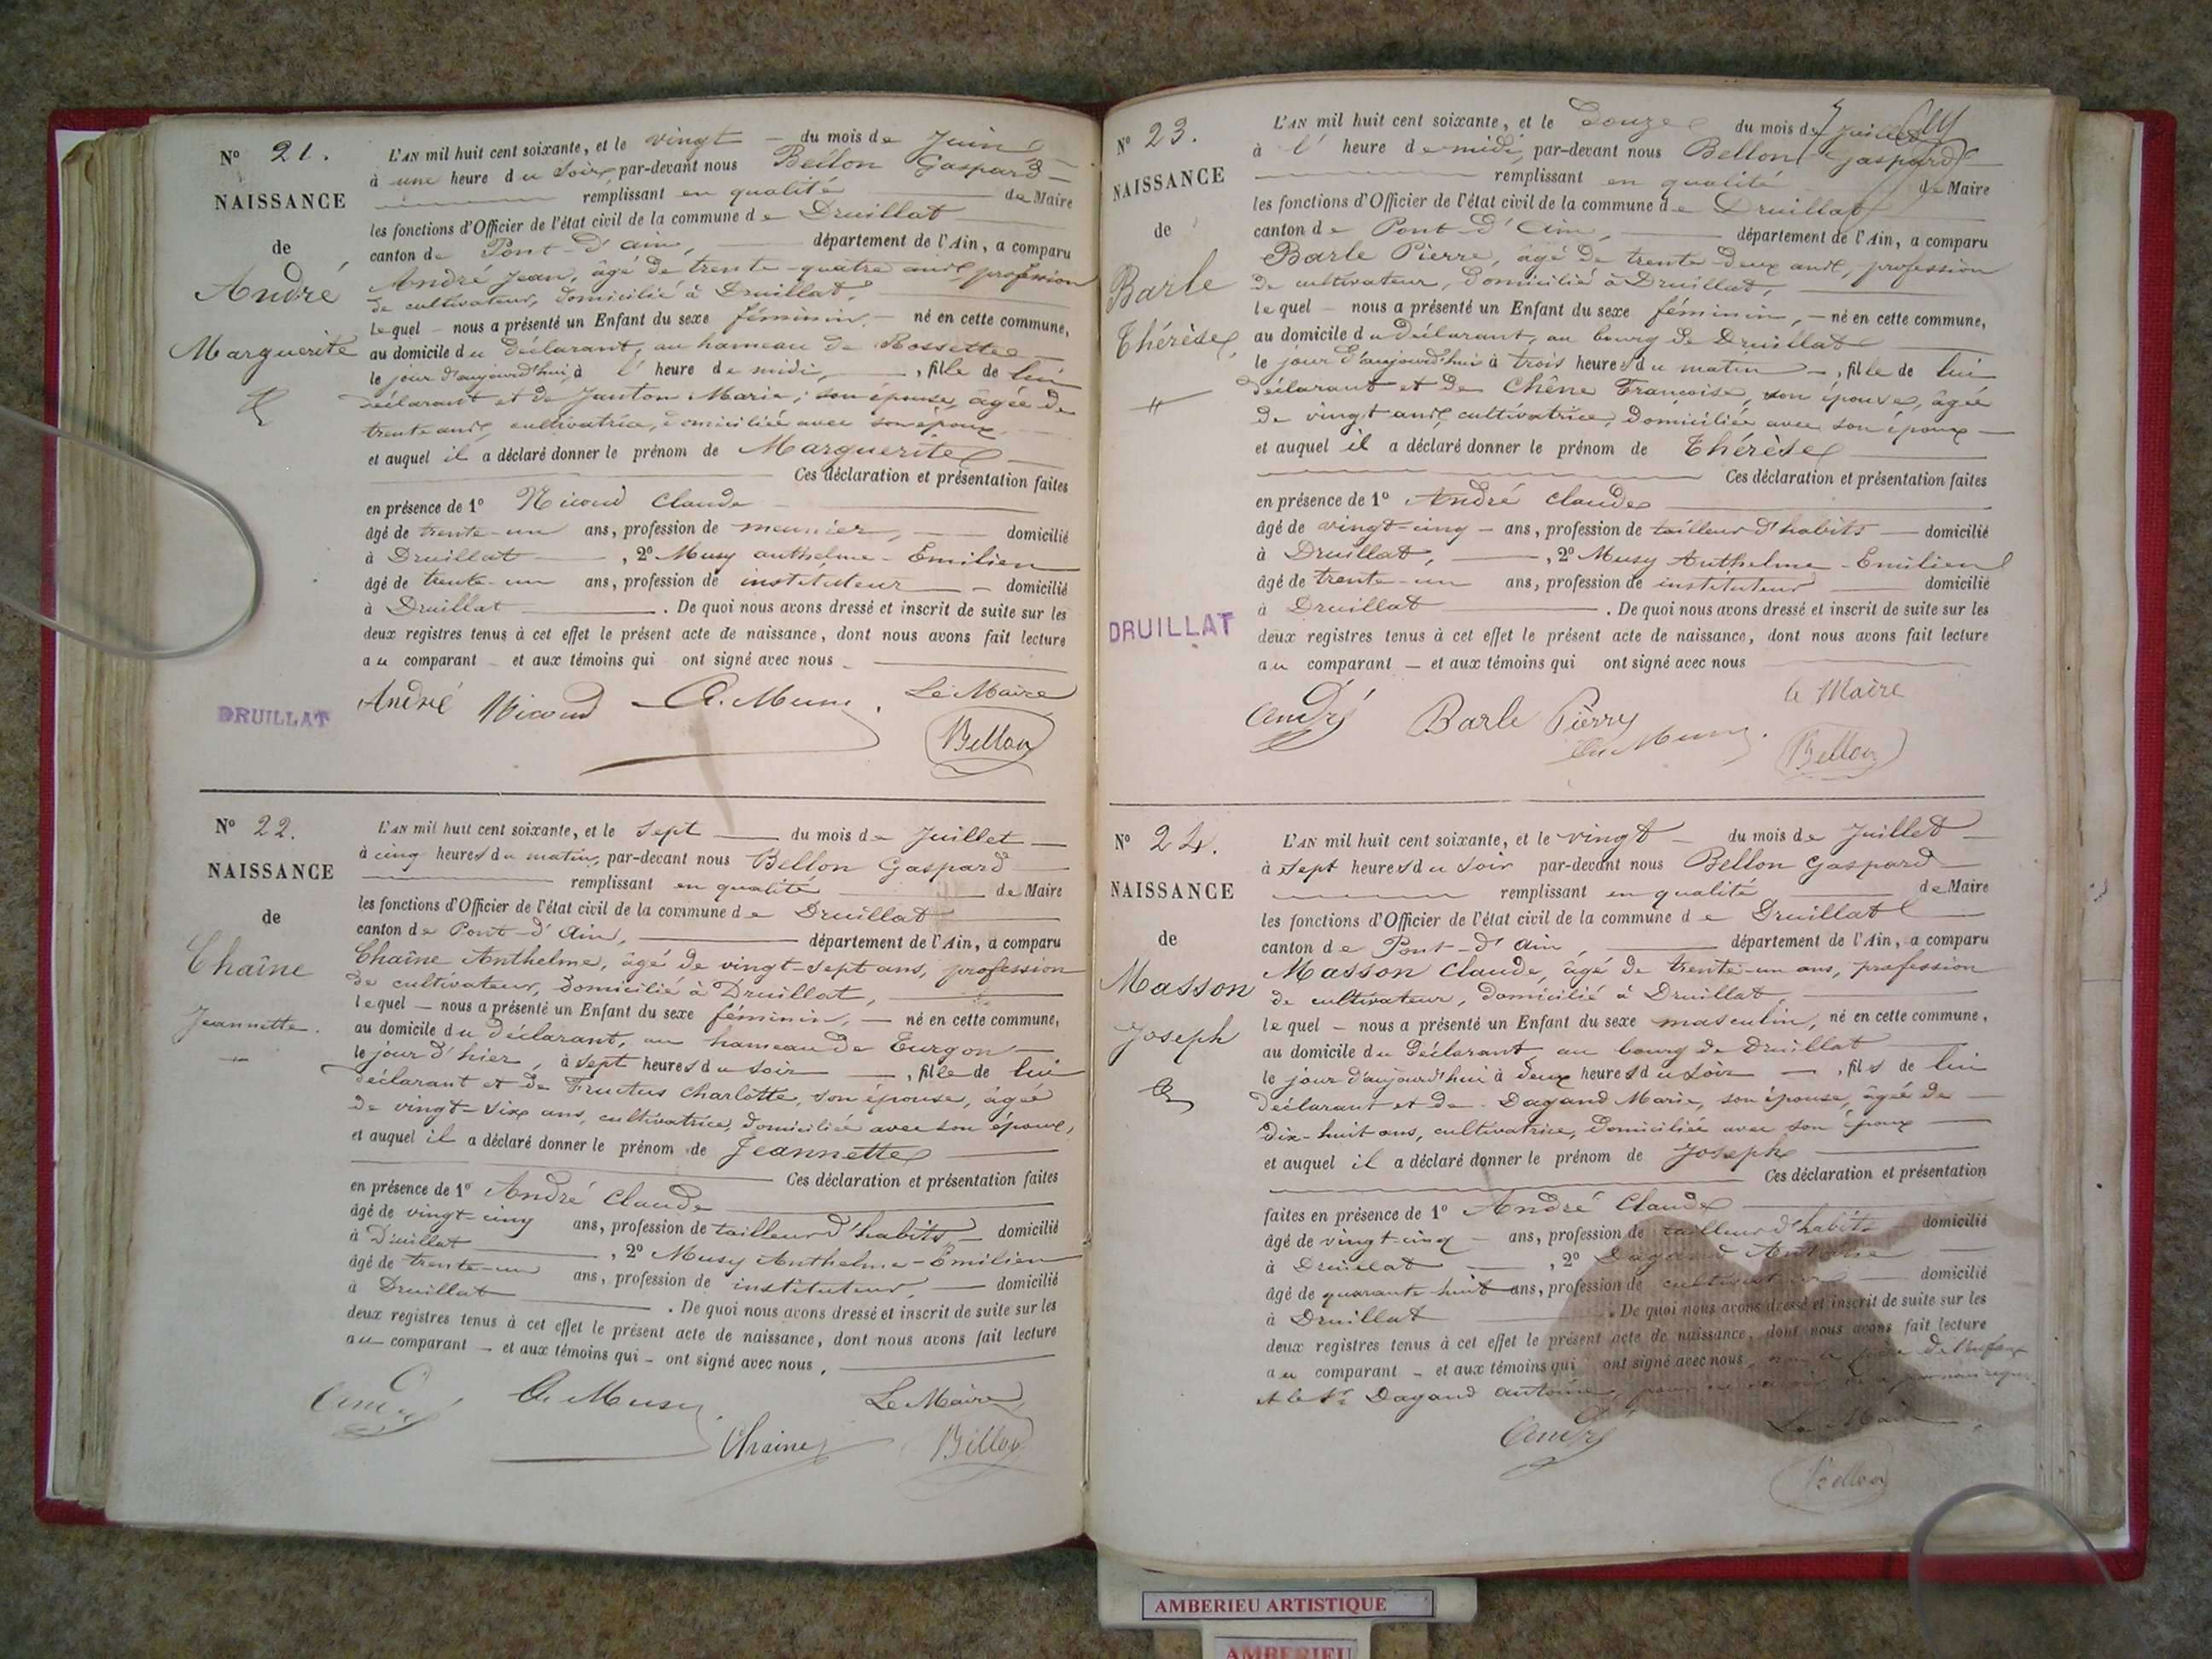 N° 21.
NAISSANCE
de
André
Marguerite
L'AN mil huit cent soixante, et le vingt — du mois de Juin
à une heure du soir par-devant nous Bellon Gaspard —
remplissant en qualité de Maire
les fonctions d'Officier de l'état civil de la commune de Druillat
canton de Pont-d'ain, département de l'Ain, a comparu
André Jean, âgé de trente-quatre ans, profession
de cultivateur, domicilié à Druillat,
lequel — nous a présenté un Enfant du sexe féminin, — né en cette commune,
au domicile du déclarant, au hameau de Rossettes
le jour d'aujourd'hui, à l' heure de midi, , fille de lui
déclarant et de Janton Marie, son épouse, âgée de
trente ans, cultivatrice, domiciliée avec son époux
et auquel il a déclaré donner le prénom de Marguerite
Ces déclaration et présentation faites
en présence de 1° Nicoud Claude
âgé de trente-un ans, profession de meunier, domicilié
à Druillat , 2° Musy anthelme-Emilien
âgé de trente-un ans, profession de instituteur — domicilié
à Druillat . De quoi nous avons dressé et inscrit de suite sur les
deux registres tenus à cet effet le présent acte de naissance, dont nous avons fait lecture
au comparant — et aux témoins qui ont signé avec nous
André Nicoud A. Musy Le Maire
Bellon
DRUILLAT
N° 22.
NAISSANCE
de
Chaîne
Jeannette.
L'AN mil huit cent soixante, et le sept — du mois de Juillet —
à cinq heures du matin, par-devant nous Bellon Gaspard
remplissant en qualité de Maire
les fonctions d'Officier de l'état civil de la commune de Druillat
canton de Pont-d'Ain, département de l'Ain, a comparu
Chaîne Anthelme, âgé de vingt-sept ans, profession
de cultivateur, domicilié à Druillat,
lequel — nous a présenté un Enfant du sexe féminin, — né en cette commune,
au domicile du déclarant, au hameau de Turgon —
le jour d'hier, à sept heures du soir — , fille de lui
déclarant et de Fructus Charlotte, son épouse, âgée
de vingt-six ans, cultivatrice, domiciliée avec son époux,
et auquel il a déclaré donner le prénom de Jeannette
Ces déclaration et présentation faites
en présence de 1° André Claude
âgé de vingt-cinq ans, profession de tailleur d'habits — domicilié
à Druillat , 2° Musy Anthelme-Emilien
âgé de trente-un ans, profession de instituteur, — domicilié
à Druillat . De quoi nous avons dressé et inscrit de suite sur les
deux registres tenus à cet effet le présent acte de naissance, dont nous avons fait lecture
au comparant — et aux témoins qui — ont signé avec nous,
André A. Musy Le Maire
Chaine Bellon
N° 23.
NAISSANCE
de
Barle
Thérèse
L'AN mil huit cent soixante, et le douze du mois de juillet
à l' heure de midi, par-devant nous Bellon Gaspard
remplissant en qualité de Maire
les fonctions d'Officier de l'état civil de la commune de Druillat
canton de Pont-d'Ain, département de l'Ain, a comparu
Barle Pierre, âgé de trente-deux ans, profession
de cultivateur, domicilié à Druillat,
lequel — nous a présenté un Enfant du sexe féminin, — né en cette commune,
au domicile du déclarant, au bourg de Druillat
le jour d'aujourd'hui à trois heures du matin — , fille de lui
déclarant et de Chêne Françoise, son épouse, âgée
de vingt ans, cultivatrice, domiciliée avec son époux —
et auquel il a déclaré donner le prénom de Thérèse
Ces déclaration et présentation faites
en présence de 1° André Claude
âgé de vingt-cinq — ans, profession de tailleur d'habits — domicilié
à Druillat, , 2° Musy Anthelme-Emilien
âgé de trente-un ans, profession de instituteur domicilié
à Druillat . De quoi nous avons dressé et inscrit de suite sur les
deux registres tenus à cet effet le présent acte de naissance, dont nous avons fait lecture
au comparant — et aux témoins qui ont signé avec nous
le Maire
André Barle Pierre
Musy Bellon
DRUILLAT
N° 24.
NAISSANCE
de
Masson
Joseph
L'AN mil huit cent soixante, et le vingt — du mois de Juillet —
à sept heures du soir par-devant nous Bellon Gaspard
remplissant en qualité de Maire
les fonctions d'Officier de l'état civil de la commune de Druillat
canton de Pont-d'ain, département de l'Ain, a comparu
Masson Claude, âgé de trente-un ans, profession
de cultivateur, domicilié à Druillat,
lequel — nous a présenté un Enfant du sexe masculin, né en cette commune,
au domicile du déclarant, au bourg de Druillat
le jour d'aujourd'hui à deux heures du soir — , fils de lui
déclarant et de Dagand Marie, son épouse, âgée de
dix-huit ans, cultivatrice, domiciliée avec son époux —
et auquel il a déclaré donner le prénom de Joseph
Ces déclaration et présentation
faites en présence de 1° André Claude
âgé de vingt-cinq — ans, profession de tailleur d'habits domicilié
à Druillat — , 2° Dagand Antoine
âgé de quarante-huit ans, profession de cultivateur — domicilié
à Druillat . De quoi nous avons dressé et inscrit de suite sur les
deux registres tenus à cet effet le présent acte de naissance, dont nous avons fait lecture
au comparant — et aux témoins qui ont signé avec nous, non le père de l'enfant
et le Sr Dagand antoine, pour ne
André Le Maire
Bellon
AMBERIEU ARTISTIQUE
AMBERIEU